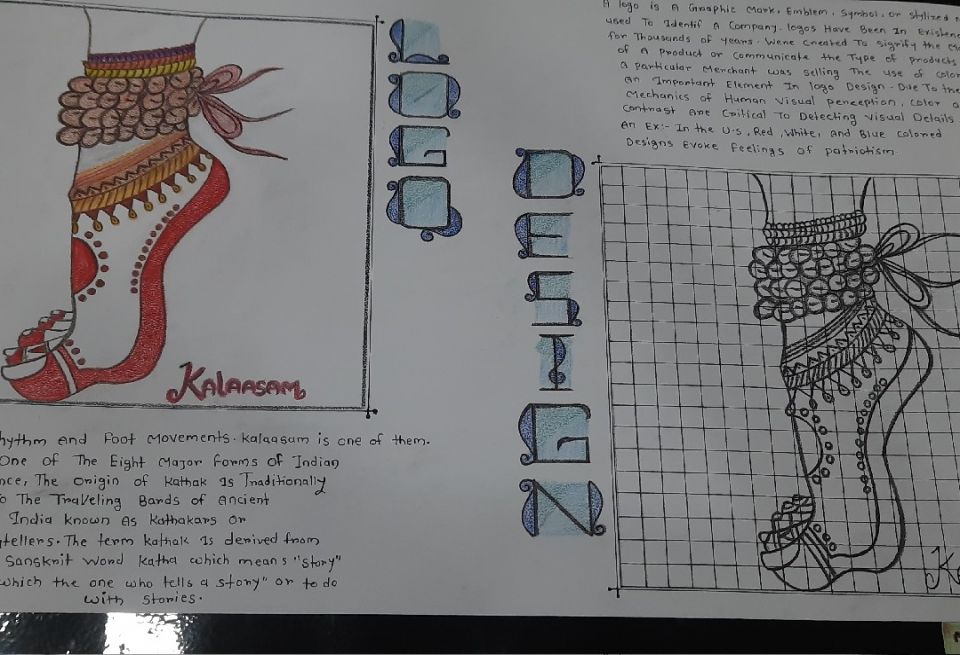 LOGO
DESIGN
A logo is A Graphic Mark, Emblem, Symbol, or stylized
used To Identif A Company. logos Have Been In
for Thousands of years. Were Created To signify the
of A Product or Communicate the Type of products
a particular Merchant was selling The use of
an Important Element In logo Design. Due To the
Mechanics of Human Visual perception, color
Contrast Are Critical To Detecting Visual Details
An Ex:- In the U.S, Red, White, And Blue Colored
Designs Evoke Feelings of patriotism.
KALAASAM
and Foot Movements. Kalaasam is one of them.
One of The Eight Major forms of Indian
The origin of Kathak Is Traditionally
The Traveling Bards of Ancient
India known As Kathakars or
The term Kathak Is derived from
Sanskrit word Katha which means "story"
which the one who tells a story" or to do
with stories.